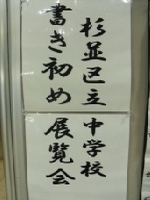 杉並区立
書き初め
中学校
展覧会